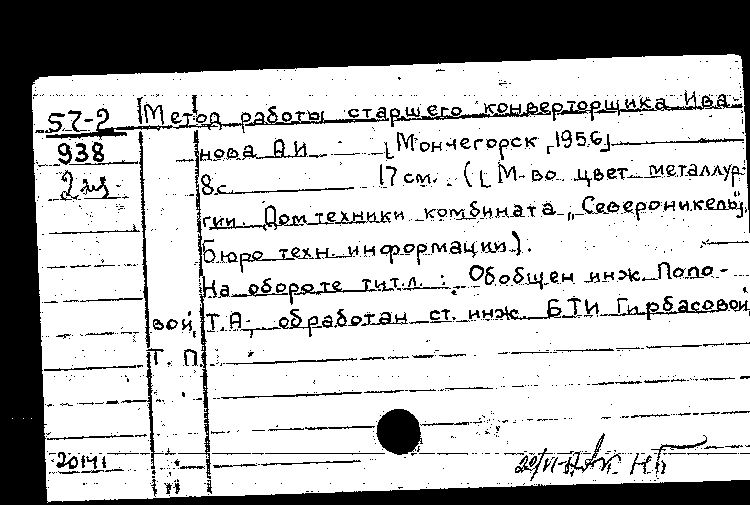 57-2 Метод работы старшего конверторщика Ива-
938 нова А.И. [Мончегорск, 1956]
2 экз. 8 с. 17 см. ([М-во цвет. металлур-
гии. Дом техники комбината „Североникель“].
Бюро техн. информации).
На обороте тит.л.: Обобщен инж. Попо-
вой, Т.А., обработан ст. инж. БТИ Гирбасовой,
Т. П.
20141